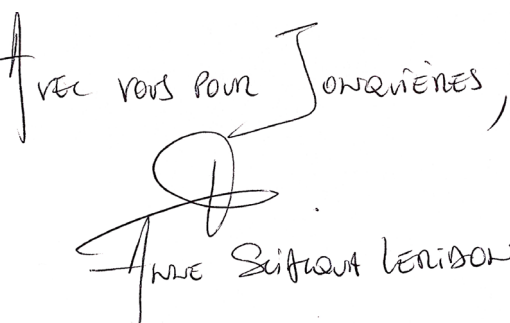 Avec vous pour Jonquières,
Anne Sciacqua Leridon